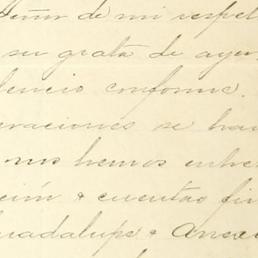 Señor de mi respet
su grata de ayer
lencio conforme.
eraciones se hac
nos hemos entre
ción & cuentas fir
Guadalupe & Anexa